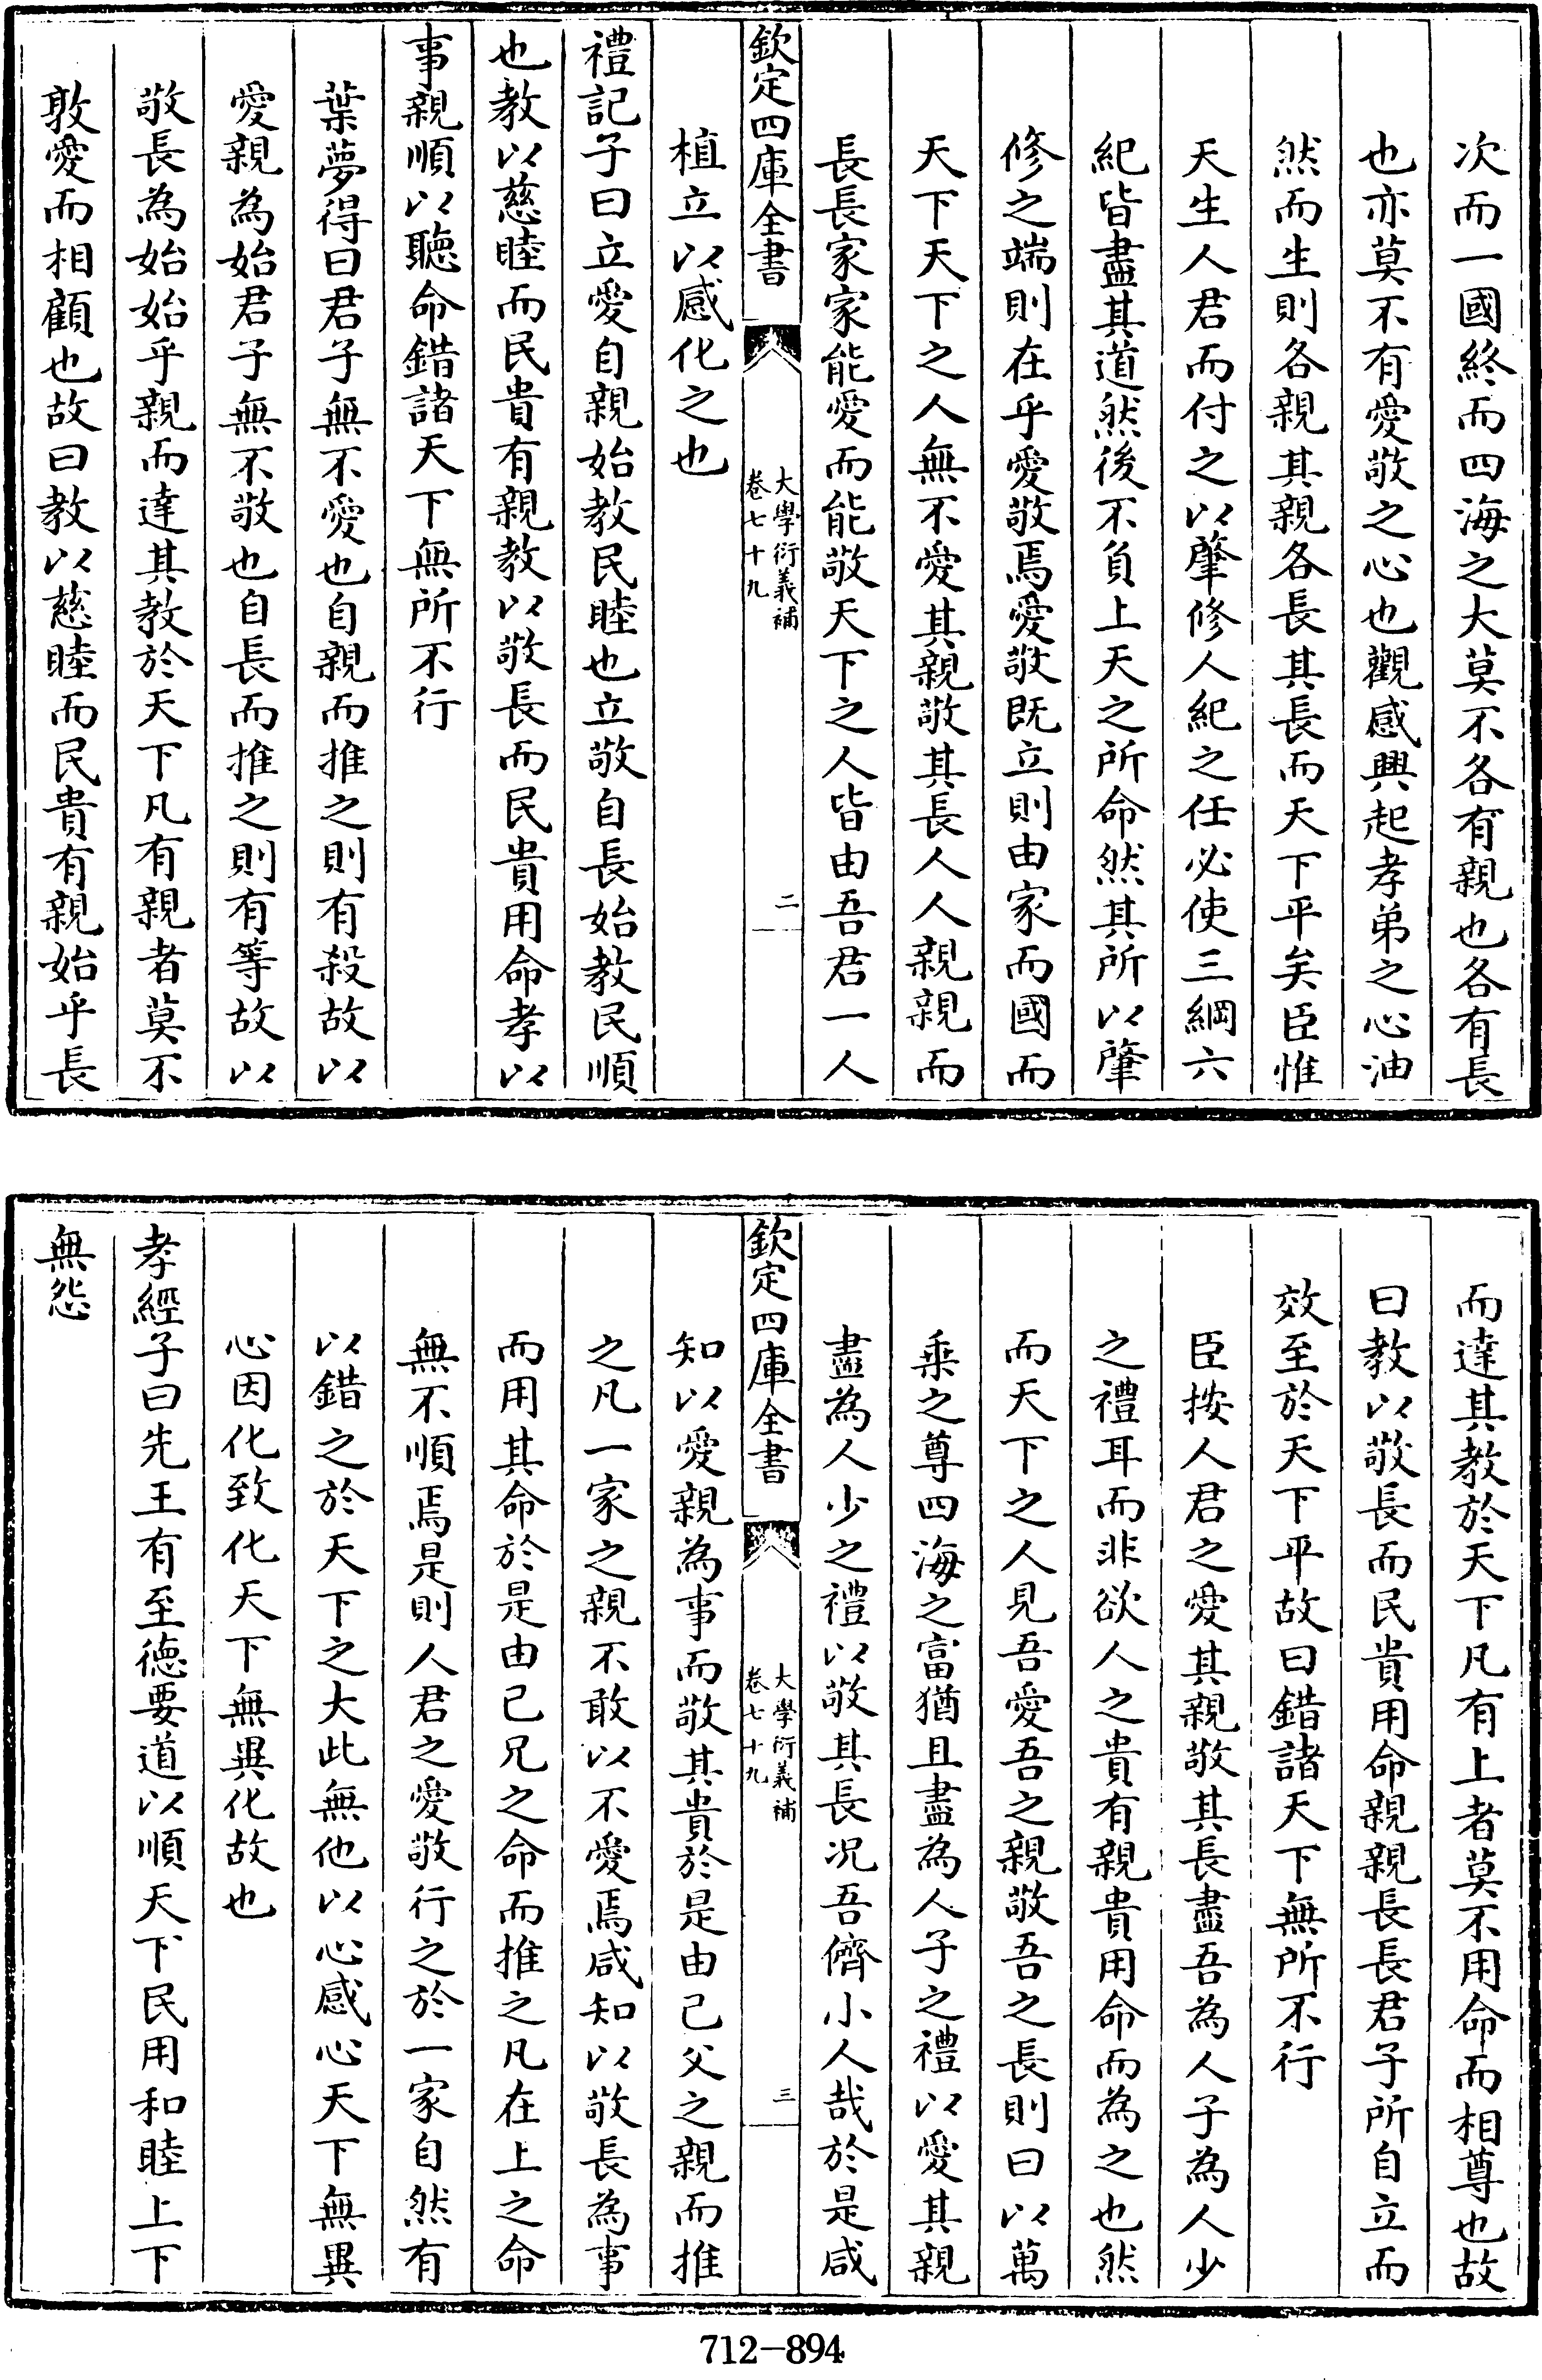 次而一國終而四海之大莫不各有親也各有長
也亦莫不有愛敬之心也觀感興起孝弟之心油
然而生則各親其親各長其長而天下平矣臣惟
天生人君而付之以肇修人紀之任必使三綱六
紀皆盡其道然後不負上天之所命然其所以肇
修之端則在乎愛敬焉愛敬既立則由家而國而
天下天下之人無不愛其親敬其長人人親親而
長長家家能愛而能敬天下之人皆由吾君一人
欽定四庫全書
大學衍義補
卷七十九
二
植立以感化之也
禮記子曰立愛自親始教民睦也立敬自長始教民順
也教以慈睦而民貴有親教以敬長而民貴用命孝以
事親順以聽命錯諸天下無所不行
葉夢得曰君子無不愛也自親而推之則有殺故以
愛親為始君子無不敬也自長而推之則有等故以
敬長為始始乎親而達其教於天下凡有親者莫不
敦愛而相顧也故曰教以慈睦而民貴有親始乎長
而達其教於天下凡有上者莫不用命而相尊也故
曰教以敬長而民貴用命親親長長君子所自立而
效至於天下平故曰錯諸天下無所不行
臣按人君之愛其親敬其長盡吾為人子為人少
之禮耳而非欲人之貴有親貴用命而為之也然
而天下之人見吾愛吾之親敬吾之長則曰以萬
乘之尊四海之富猶且盡為人子之禮以愛其親
盡為人少之禮以敬其長况吾儕小人哉於是咸
欽定四庫全書
大學衍義補
卷七十九
三
知以愛親為事而敬其貴於是由己父之親而推
之凡一家之親不敢以不愛焉咸知以敬長為事
而用其命於是由己兄之命而推之凡在上之命
無不順焉是則人君之愛敬行之於一家自然有
以錯之於天下之大此無他以心感心天下無異
心因化致化天下無異化故也
孝經子曰先王有至德要道以順天下民用和睦上下
無怨
712-894